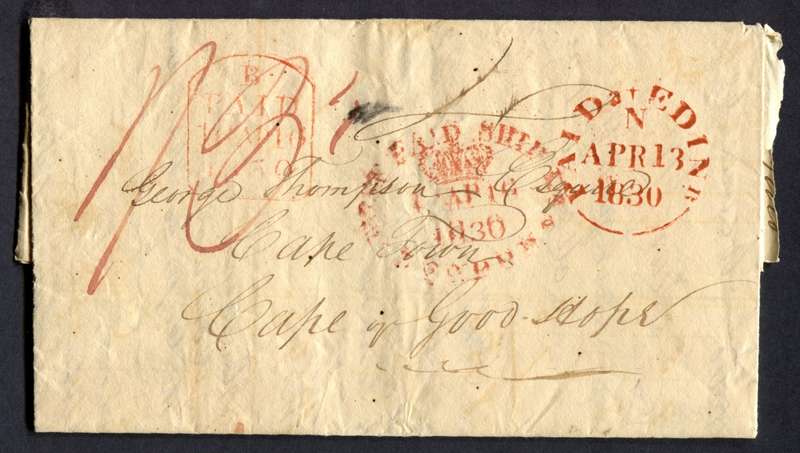 B
PAID
PAID SHIP
PAID EDINR
N
APR 13
1830
1830
George Thompson Esquire
Cape Town
Cape of Good Hope